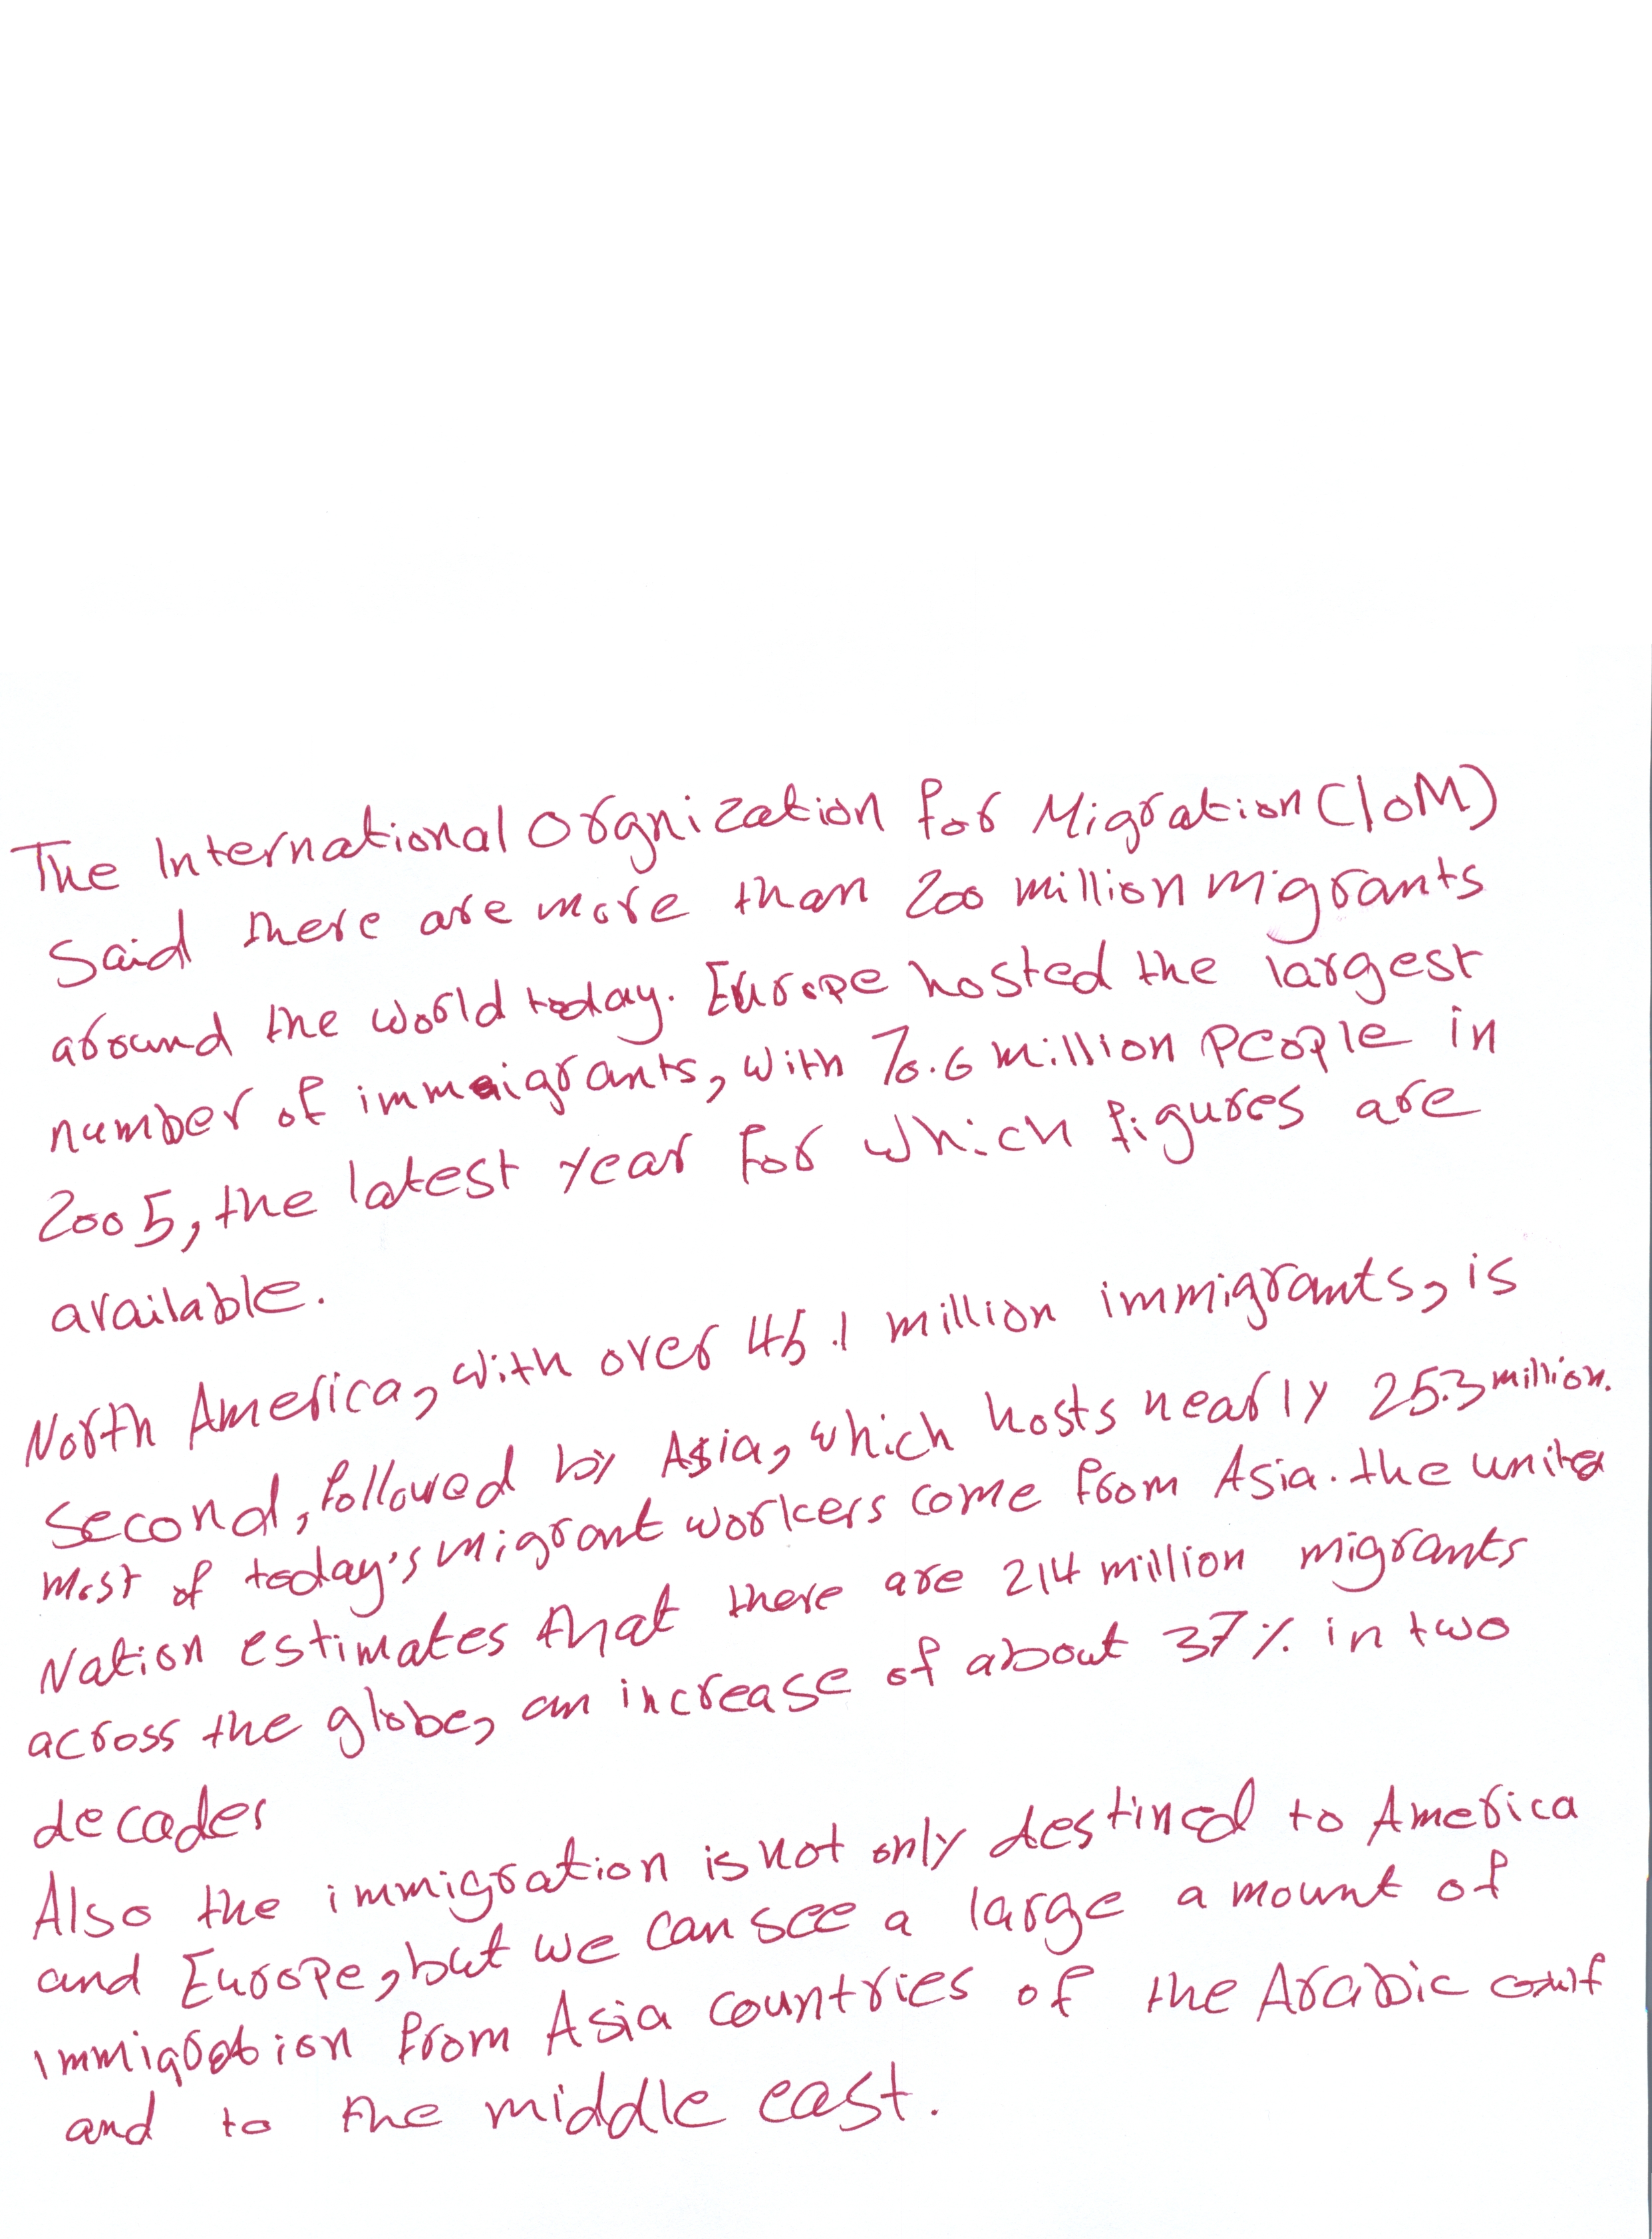 The International Orgnization for Migration (IOM)
Said there are more than 200 million migrants
around the world today. Europe hosted the largest
number of immigrants, with 70.6 million people in
2005, the latest year for which figures are
available.
North America, with over 45.1 million immigrants, is
Second, followed by Asia, which hosts nearly 25.3 million.
Most of today's migrant workers come from Asia. the united
Nation estimates that there are 214 million migrants
across the globe, an increase of about 37% in two
decades
Also the immigration is not only destined to America
and Europe, but we can see a large amount of
immigration from Asia countries of the Arabic Gulf
and to the middle east.